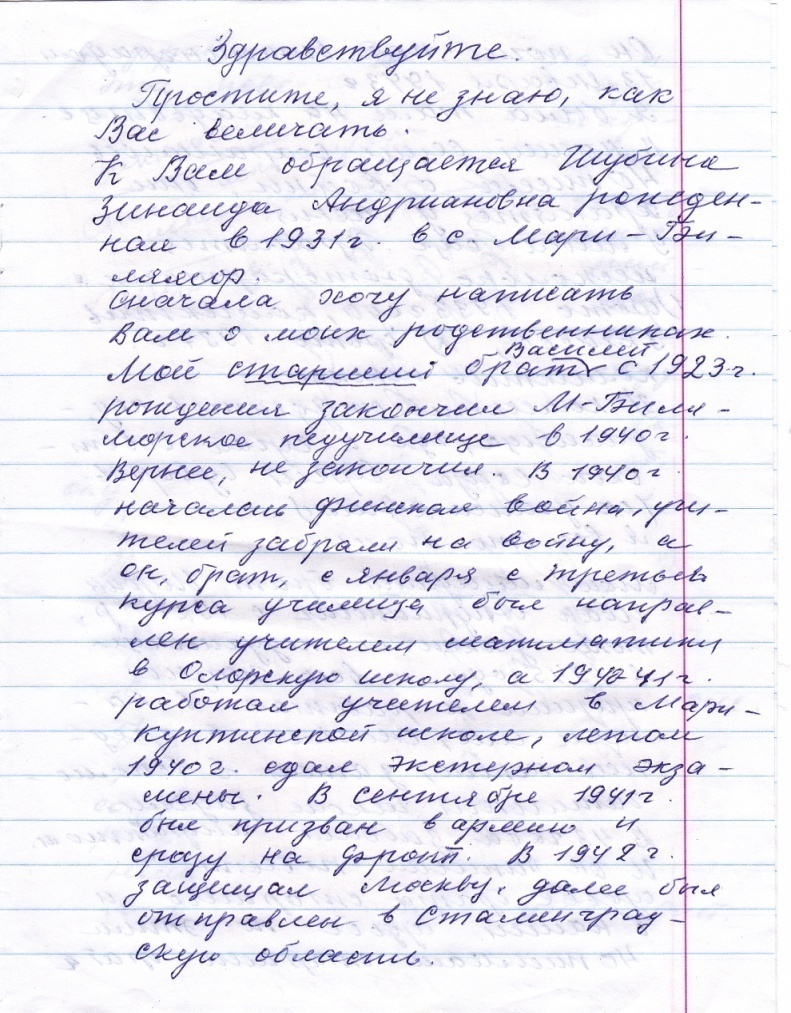 Здравствуйте.
Простите, я не знаю, как
Вас величать.
К Вам обращается Шубина
Зинаида Андриановна рожден-
ная в 1931г. в с Мари-Би-
лямор.
сначала хочу написать
Вам о моих родственниках.
Василий
Мой старший брат с 1923г.
рождения закончил М-Биля-
морское педучилище в 1940г.
Вернее, не закончил. В 1940г.
началась финская война, учи-
телей забрали на войну, а
он, брат, с января с третьего
курса училища был направ-
лен учителем математики
в Олорскую школу, а 1941г.
работал учителем в Мари-
куптинской школе, летом
1940г. сдал экстерном экза-
мены. В сентябре 1941г.
был призван в армию и
сразу на фронт. В 1942г.
защищал Москву, далее был
отправлен в Сталинград-
скую область.